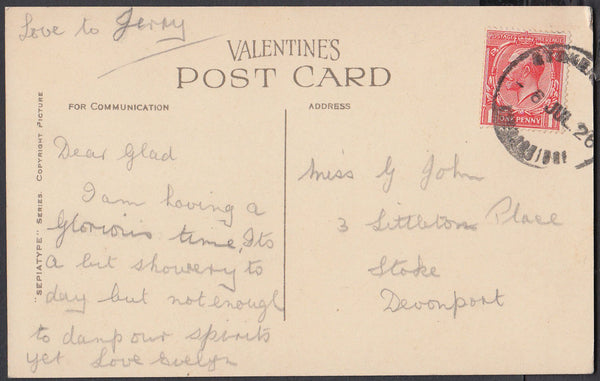 Love to Jerry
VALENTINE'S
POST CARD
FOR COMMUNICATION
ADDRESS
"SEPIATYPE" SERIES. COPYRIGHT PICTURE
Dear Glad
I am having a
Glorious time, Its
a bit showery to
day but not enough
to damp our spirits
yet Love Evelyn
Miss G John
3 Littleton Place
Stoke
Devonport
POSTAGE REVENUE
ONE PENNY
6 JUL 26